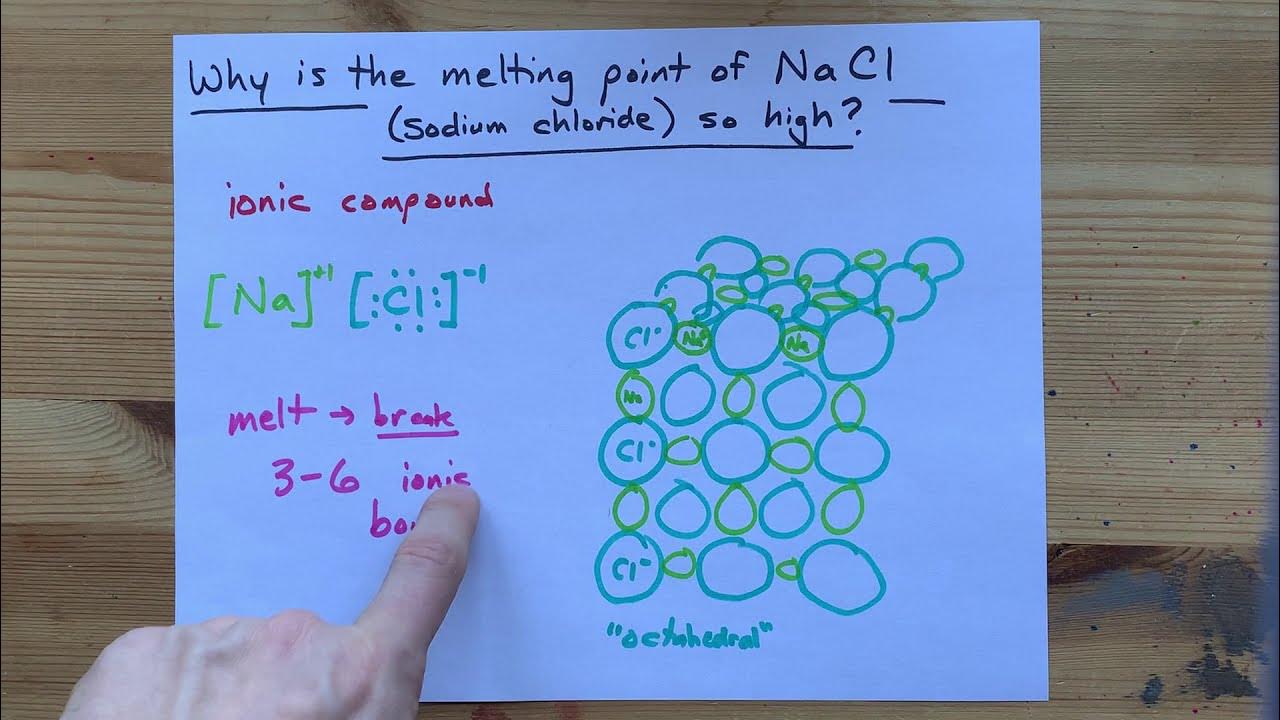 Why is the melting point of NaCl
(sodium chloride) so high?
ionic compound
[Na]⁺¹ [:C̈l:]⁻¹
melt → break
3-6 ionic
Cl⁻ Na Na
Na
Cl⁻
Cl⁻
"octahedral"